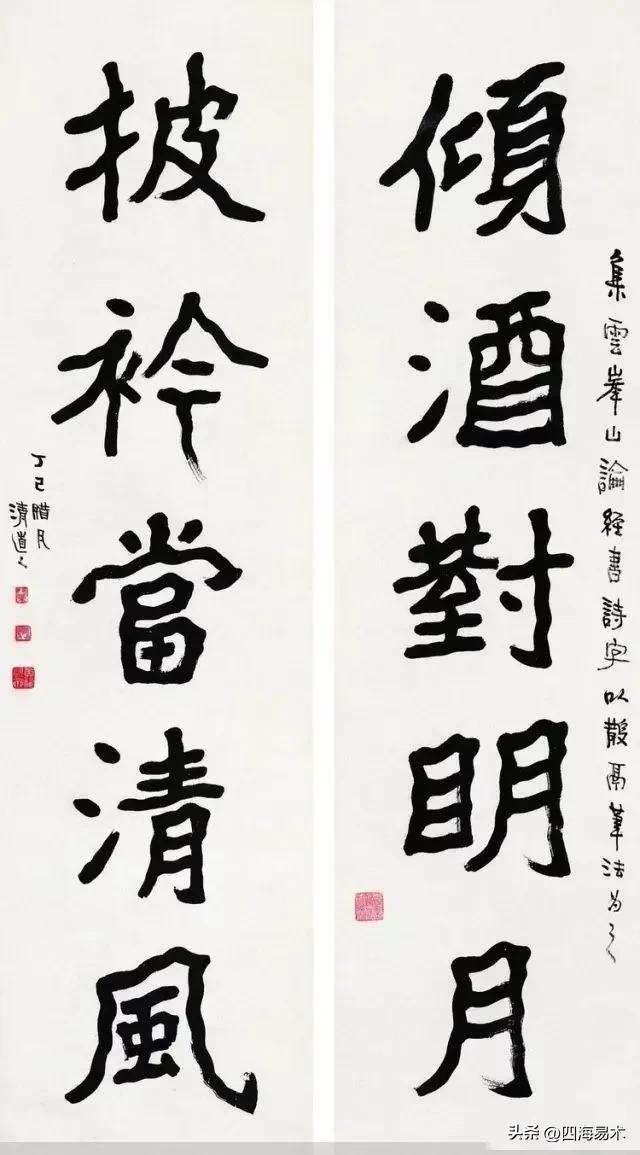 集雲峯山論經書詩字以散鬲筆法為之
傾酒對明月
披衿當清風
丁巳臘月
清道人
头条 @四海易木